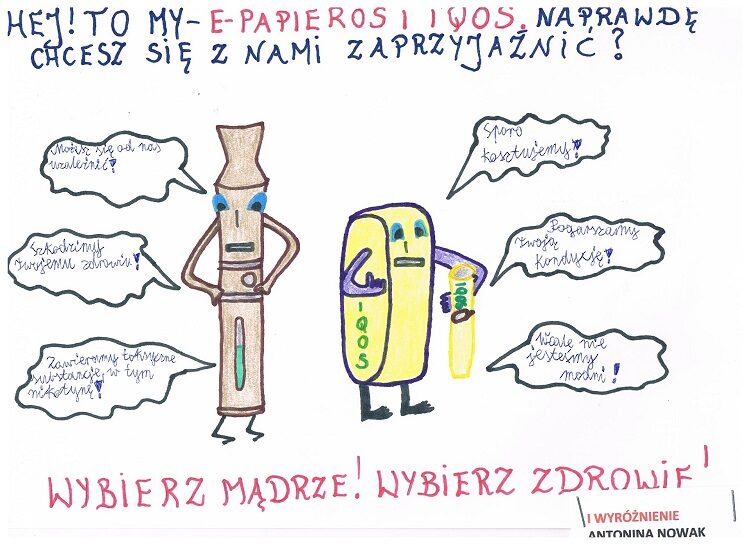 HEJ! TO MY- E-PAPIEROS I IQOS. NAPRAWDĘ
CHCESZ SIĘ Z NAMI ZAPRZYJAŹNIĆ?
Możesz się od nas
uzależnić!
Szkodzimy
twojemu zdrowiu!
Zawieramy toksyczne
substancje, w tym
nikotynę!
Sporo
kosztujemy!
Pogarszamy
twoją
kondycję!
Wcale nie
jesteśmy
modni!
IQOS
IQOS
WYBIERZ MĄDRZE! WYBIERZ ZDROWIE!
I WYRÓŻNIENIE
ANTONINA NOWAK